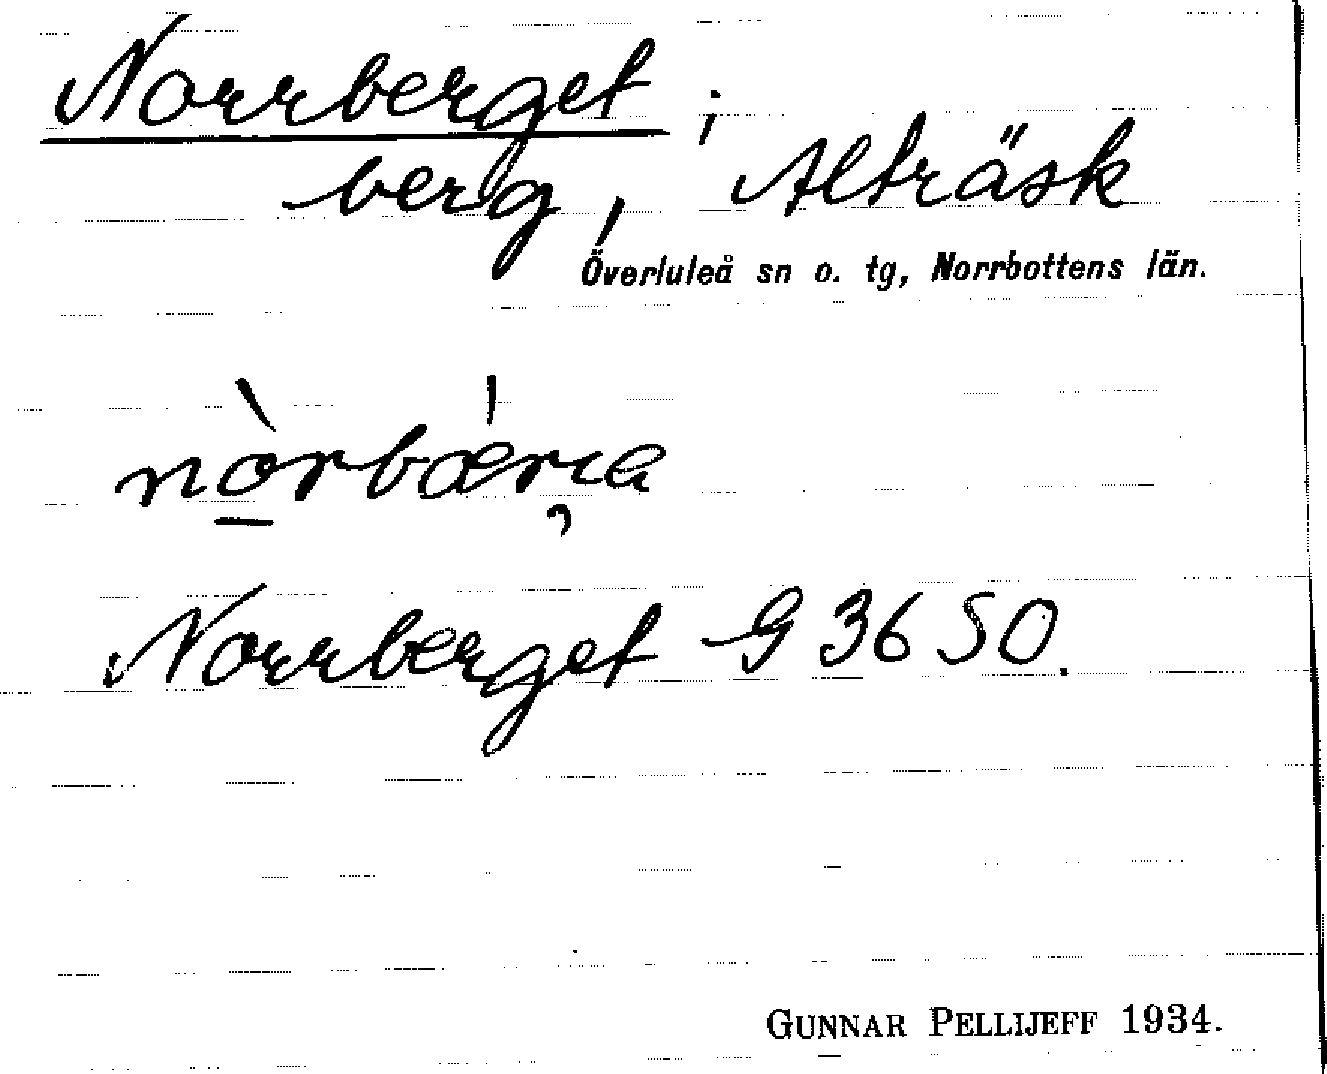 Norrberget ;
berg, Alträsk
Överluleå sn o. tg, Norrbottens län.
nòrbærıa
Norrberget G 36 50.
GUNNAR PELLIJEFF 1934.